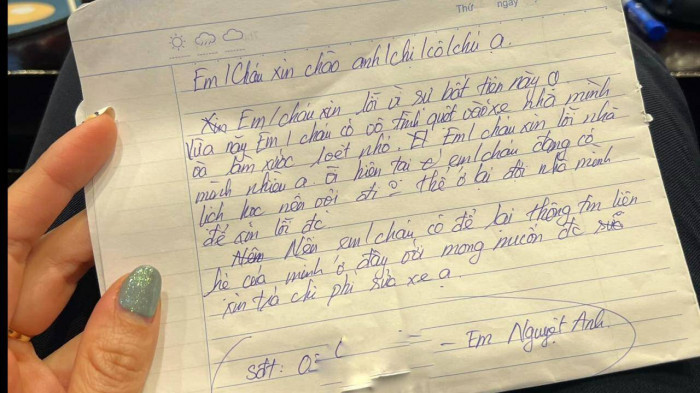 Thứ ngày
Em/Cháu xin chào anh/chị/cô/chú ạ.
Em/cháu xin lỗi vì sự bất tiện này ạ
Vừa nãy Em/cháu có vô tình quệt vào xe nhà mình
và làm xước loẹt nhỏ. Em/cháu xin lỗi nhà
mình nhiều ạ. Vì hiện tại em/cháu đang có
lịch học nên vội đi thể ở lại đợi nhà mình
để xin lỗi đc
Nên em/cháu có để lại thông tin liên
hệ của mình ở đây với mong muốn đc
xin trả chi phí sửa xe ạ.
- Em Nguyệt Anh
sđt: 0